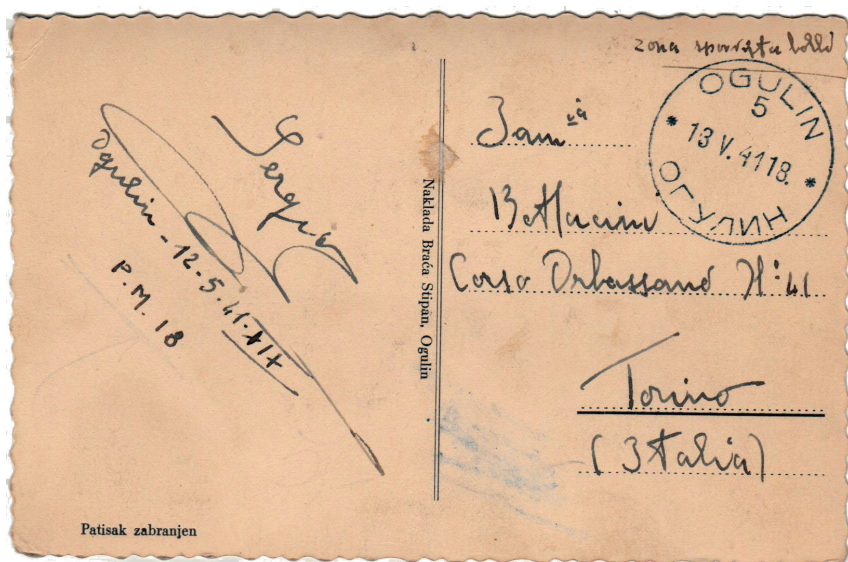 Sergio
Ogulin - 12.5.41.XIX
P.M. 18
Patisak zabranjen
Naklada Braća Stipán, Ogulin
zona sprovvista bolli
OGULIN
5
13 V. 41 18.
* *
ОГУЛИН
Fam
Corso Orbassano N: 41
Torino
(Italia)